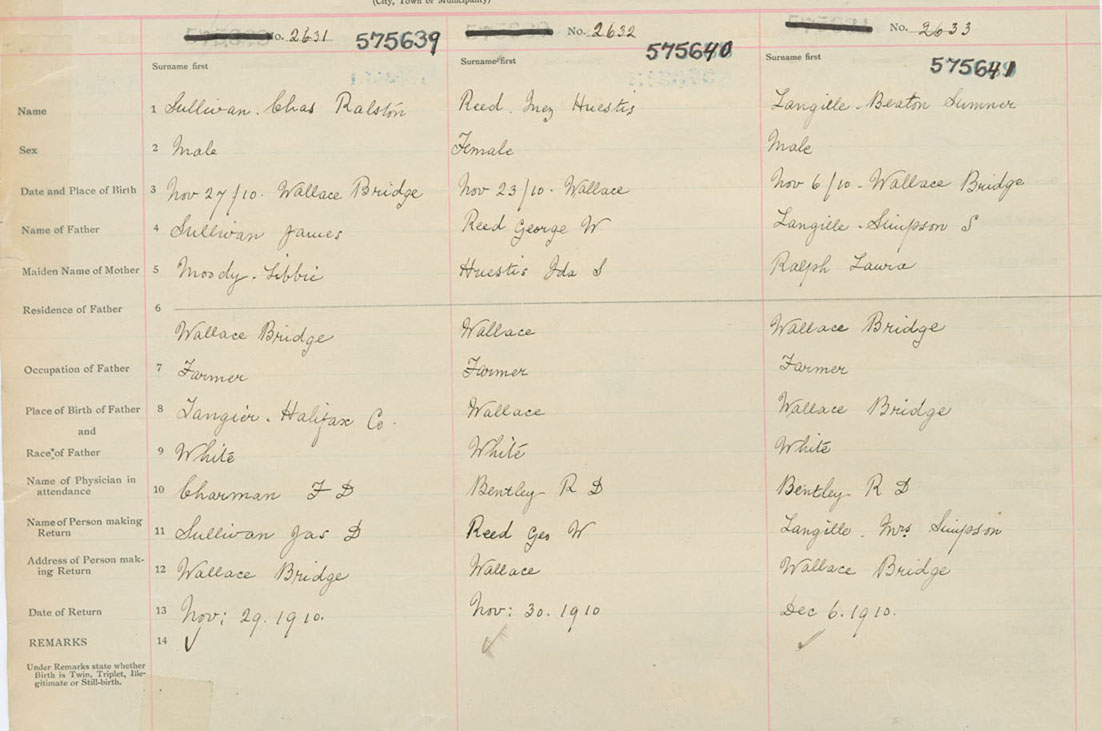 (City, Town or Municipality)
No. 2631 575639 No. 2632 575640 No. 2633 575641
Surname first Surname first Surname first
Name 1 Sullivan. Chas Ralston Reed. Inez Huestis Langille. Beaton Sumner
Sex 2 Male Female Male
Date and Place of Birth 3 Nov 27/10. Wallace Bridge Nov 23/10. Wallace Nov 6/10. Wallace Bridge
Name of Father 4 Sullivan James Reed George W Langille. Simpson S
Maiden Name of Mother 5 Moody. Libbie Huestis Ida S Ralph Laura
Residence of Father 6
Wallace Bridge Wallace Wallace Bridge
Occupation of Father 7 Farmer Farmer Farmer
Place of Birth of Father 8 Tangier. Halifax Co. Wallace Wallace Bridge
and
Race of Father 9 White White White
Name of Physician in
attendance 10 Charman F D Bentley R D Bentley. R D
Name of Person making
Return 11 Sullivan Jas D Reed Geo W Langille. Mrs Simpson
Address of Person mak-
ing Return 12 Wallace Bridge Wallace Wallace Bridge
Date of Return 13 Nov: 29. 1910. Nov: 30. 1910 Dec 6. 1910.
REMARKS 14 ✓ ✓ ✓
Under Remarks state whether
Birth is Twin, Triplet, Ille-
gitimate or Still-birth.